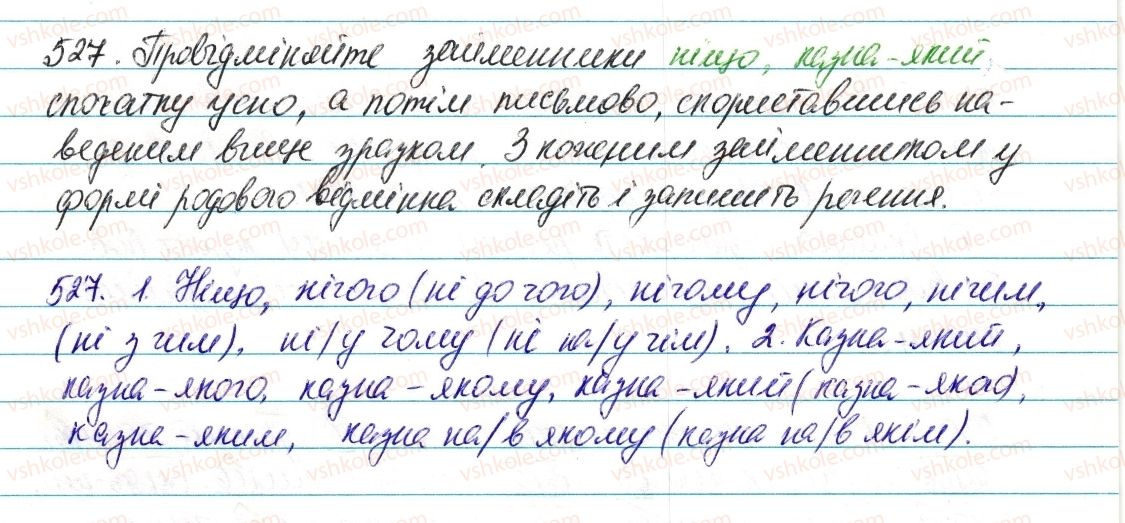 527. Провідміняйте займенники ніщо, казна-який,
спочатку усно, а потім письмово, скориставшись на-
веденим вище зразком. З кожним займенником у
формі родового відмінка складіть і запишіть речення.
527. 1. Ніщо, нічого (ні до чого), нічому, нічого, нічим,
(ні з чим), ні/у чому (ні на/у чім). 2. Казна-який,
казна-якого, казна-якому, казна-який (казна-якого),
казна-яким, казна на/в якому (казна на/в якім).